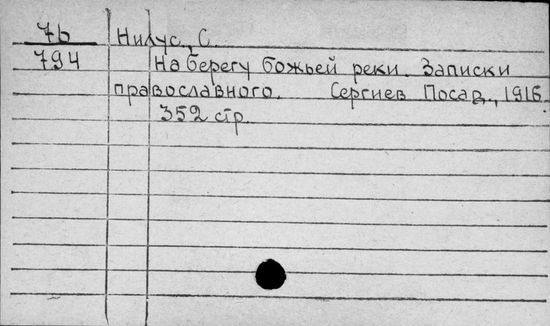 7b Нилус, С.
794 На берегу божьей реки. Записки
православного. Сергиев Посад, 1916.
352 стр.